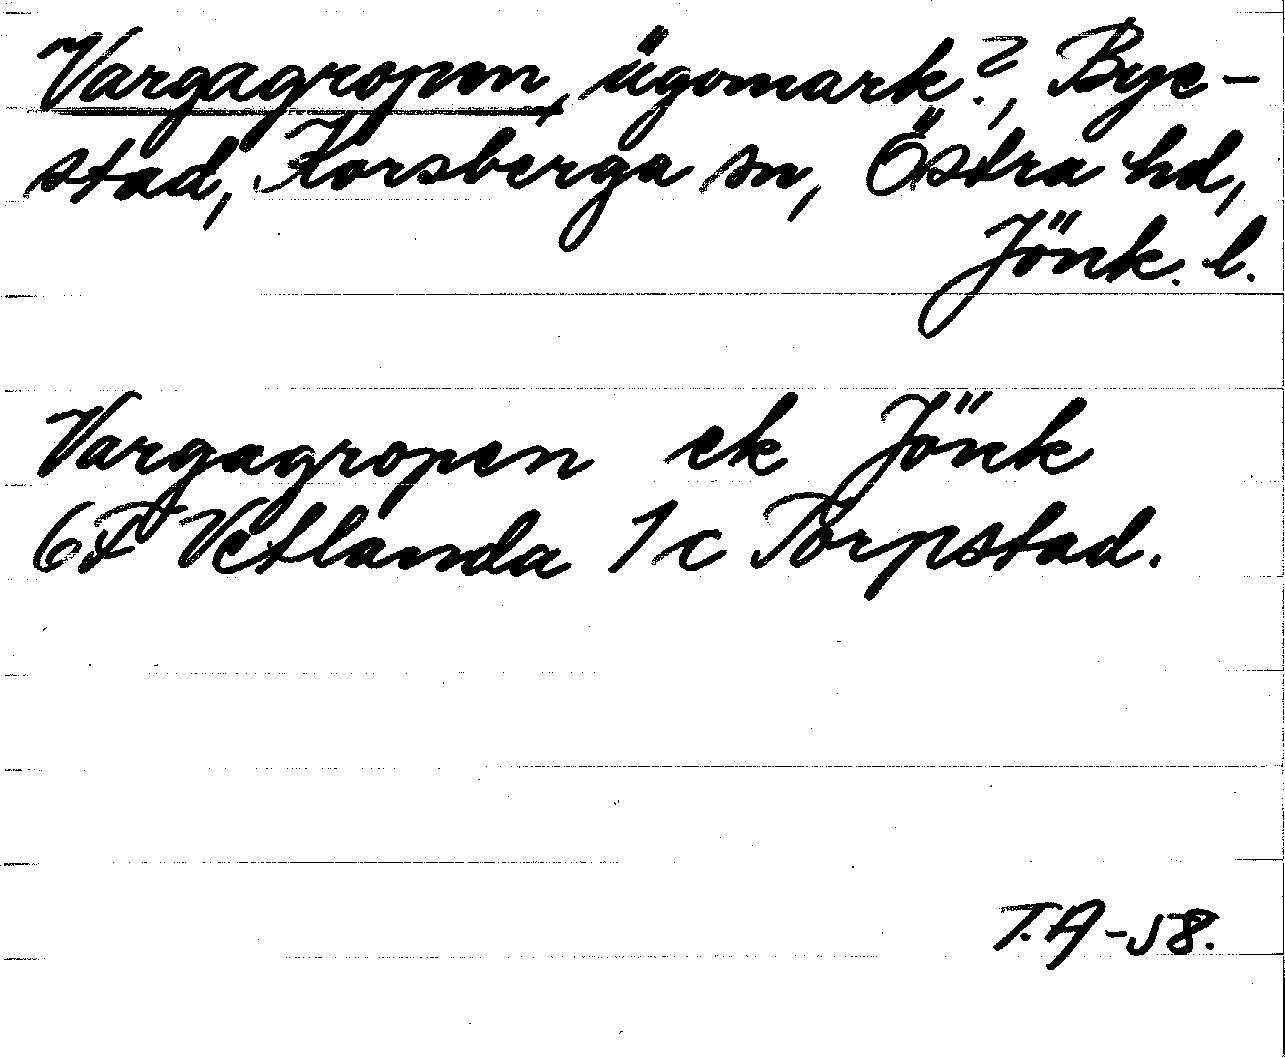 Vargagropen, ägomark?, Bye-
stad, Korsberga sn, Östra hd,
Jönk. l.
Vargagropen ek Jönk
6F Vetlanda 1c Torpstad.
T.A -58.